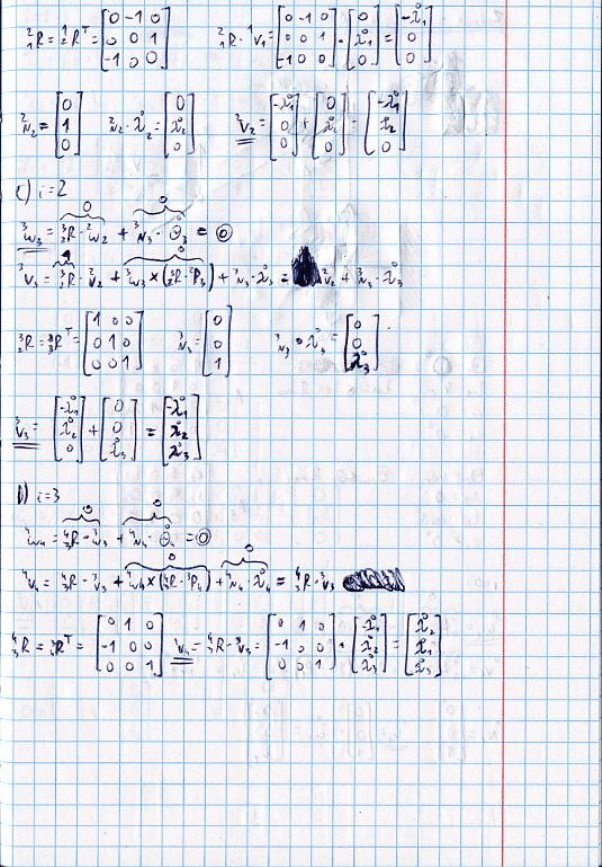 ²₁R = ¹₂Rᵀ = [0 -1 0; 0 0 1; -1 0 0]   ²₁R · ¹v₁ = [0 -1 0; 0 0 1; -1 0 0] · [0; ẋ₁; 0] = [-ẋ₁; 0; 0]
²n₂ = [0; 1; 0]   ²n₂ · ẋ₂ = [0; ẋ₂; 0]   ²v₂ = [-ẋ₁; 0; 0] + [0; ẋ₂; 0] = [-ẋ₁; ẋ₂; 0]
c) i=2
0   0
³w₃ = ³₂R · ²w₂ + ³n₃ · θ̇₃ = 0
0
³v₃ = ³₂R · ²v₂ + ³w₃ × (³₂R · ²P₃) + ³n₃ · ẋ₃ = ²v₂ + ³n₃ · ẋ₃
³₂R = ²₃Rᵀ = [1 0 0; 0 1 0; 0 0 1]   ³n₃ = [0; 0; 1]   ³n₃ · ẋ₃ = [0; 0; ẋ₃]
³v₃ = [-ẋ₁; ẋ₂; 0] + [0; 0; ẋ₃] = [-ẋ₁; ẋ₂; ẋ₃]
D) i=3
0   0
⁴w₄ = ⁴₃R · ³w₃ + ⁴n₄ · θ̇₄ = 0
0   0
⁴v₄ = ⁴₃R · ³v₃ + ⁴w₄ × (⁴₃R · ³P₄) + ⁴n₄ · ẋ₄ = ⁴₃R · ³v₃
⁴₃R = ³₄Rᵀ = [0 1 0; -1 0 0; 0 0 1]   ⁴v₄ = ⁴₃R · ³v₃ = [0 1 0; -1 0 0; 0 0 1] · [-ẋ₁; ẋ₂; ẋ₃] = [ẋ₂; ẋ₁; ẋ₃]